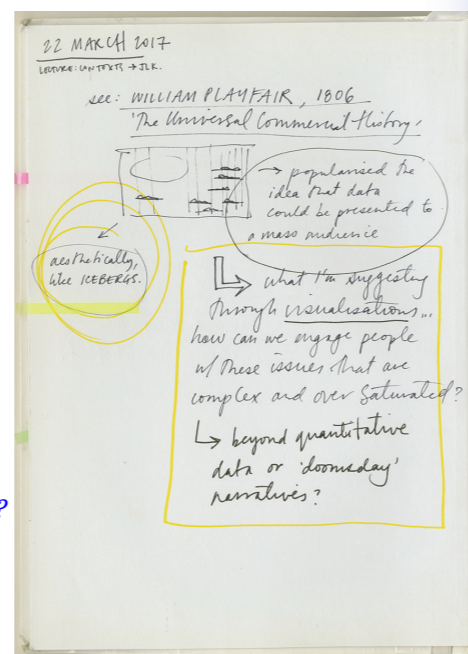 22 MARCH 2017
LECTURE: CONTEXTS → JLK.
see: WILLIAM PLAYFAIR, 1806
'The Universal Commercial History'
→ popularised the
idea that data
could be presented to
a mass audience
aesthetically,
like ICEBERGS.
↳ what I'm suggesting
through visualisations...
how can we engage people
w/ these issues that are
complex and over saturated?
↳ beyond quantitative
data or 'doomsday'
narratives?
?